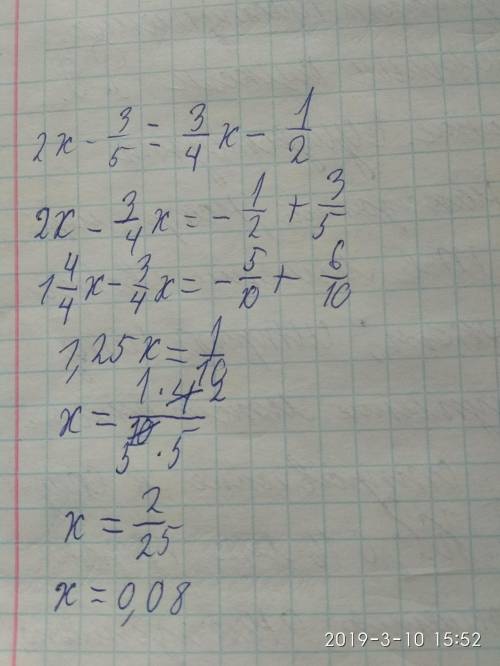 2x - 3/5 = 3/4 x - 1/2
2x - 3/4 x = - 1/2 + 3/5
1 4/4 x - 3/4 x = - 5/10 + 6/10
1,25x = 1/10
x = 1·4 2 / 10 5·5
x = 2/25
x = 0,08
2019-3-10 15:52